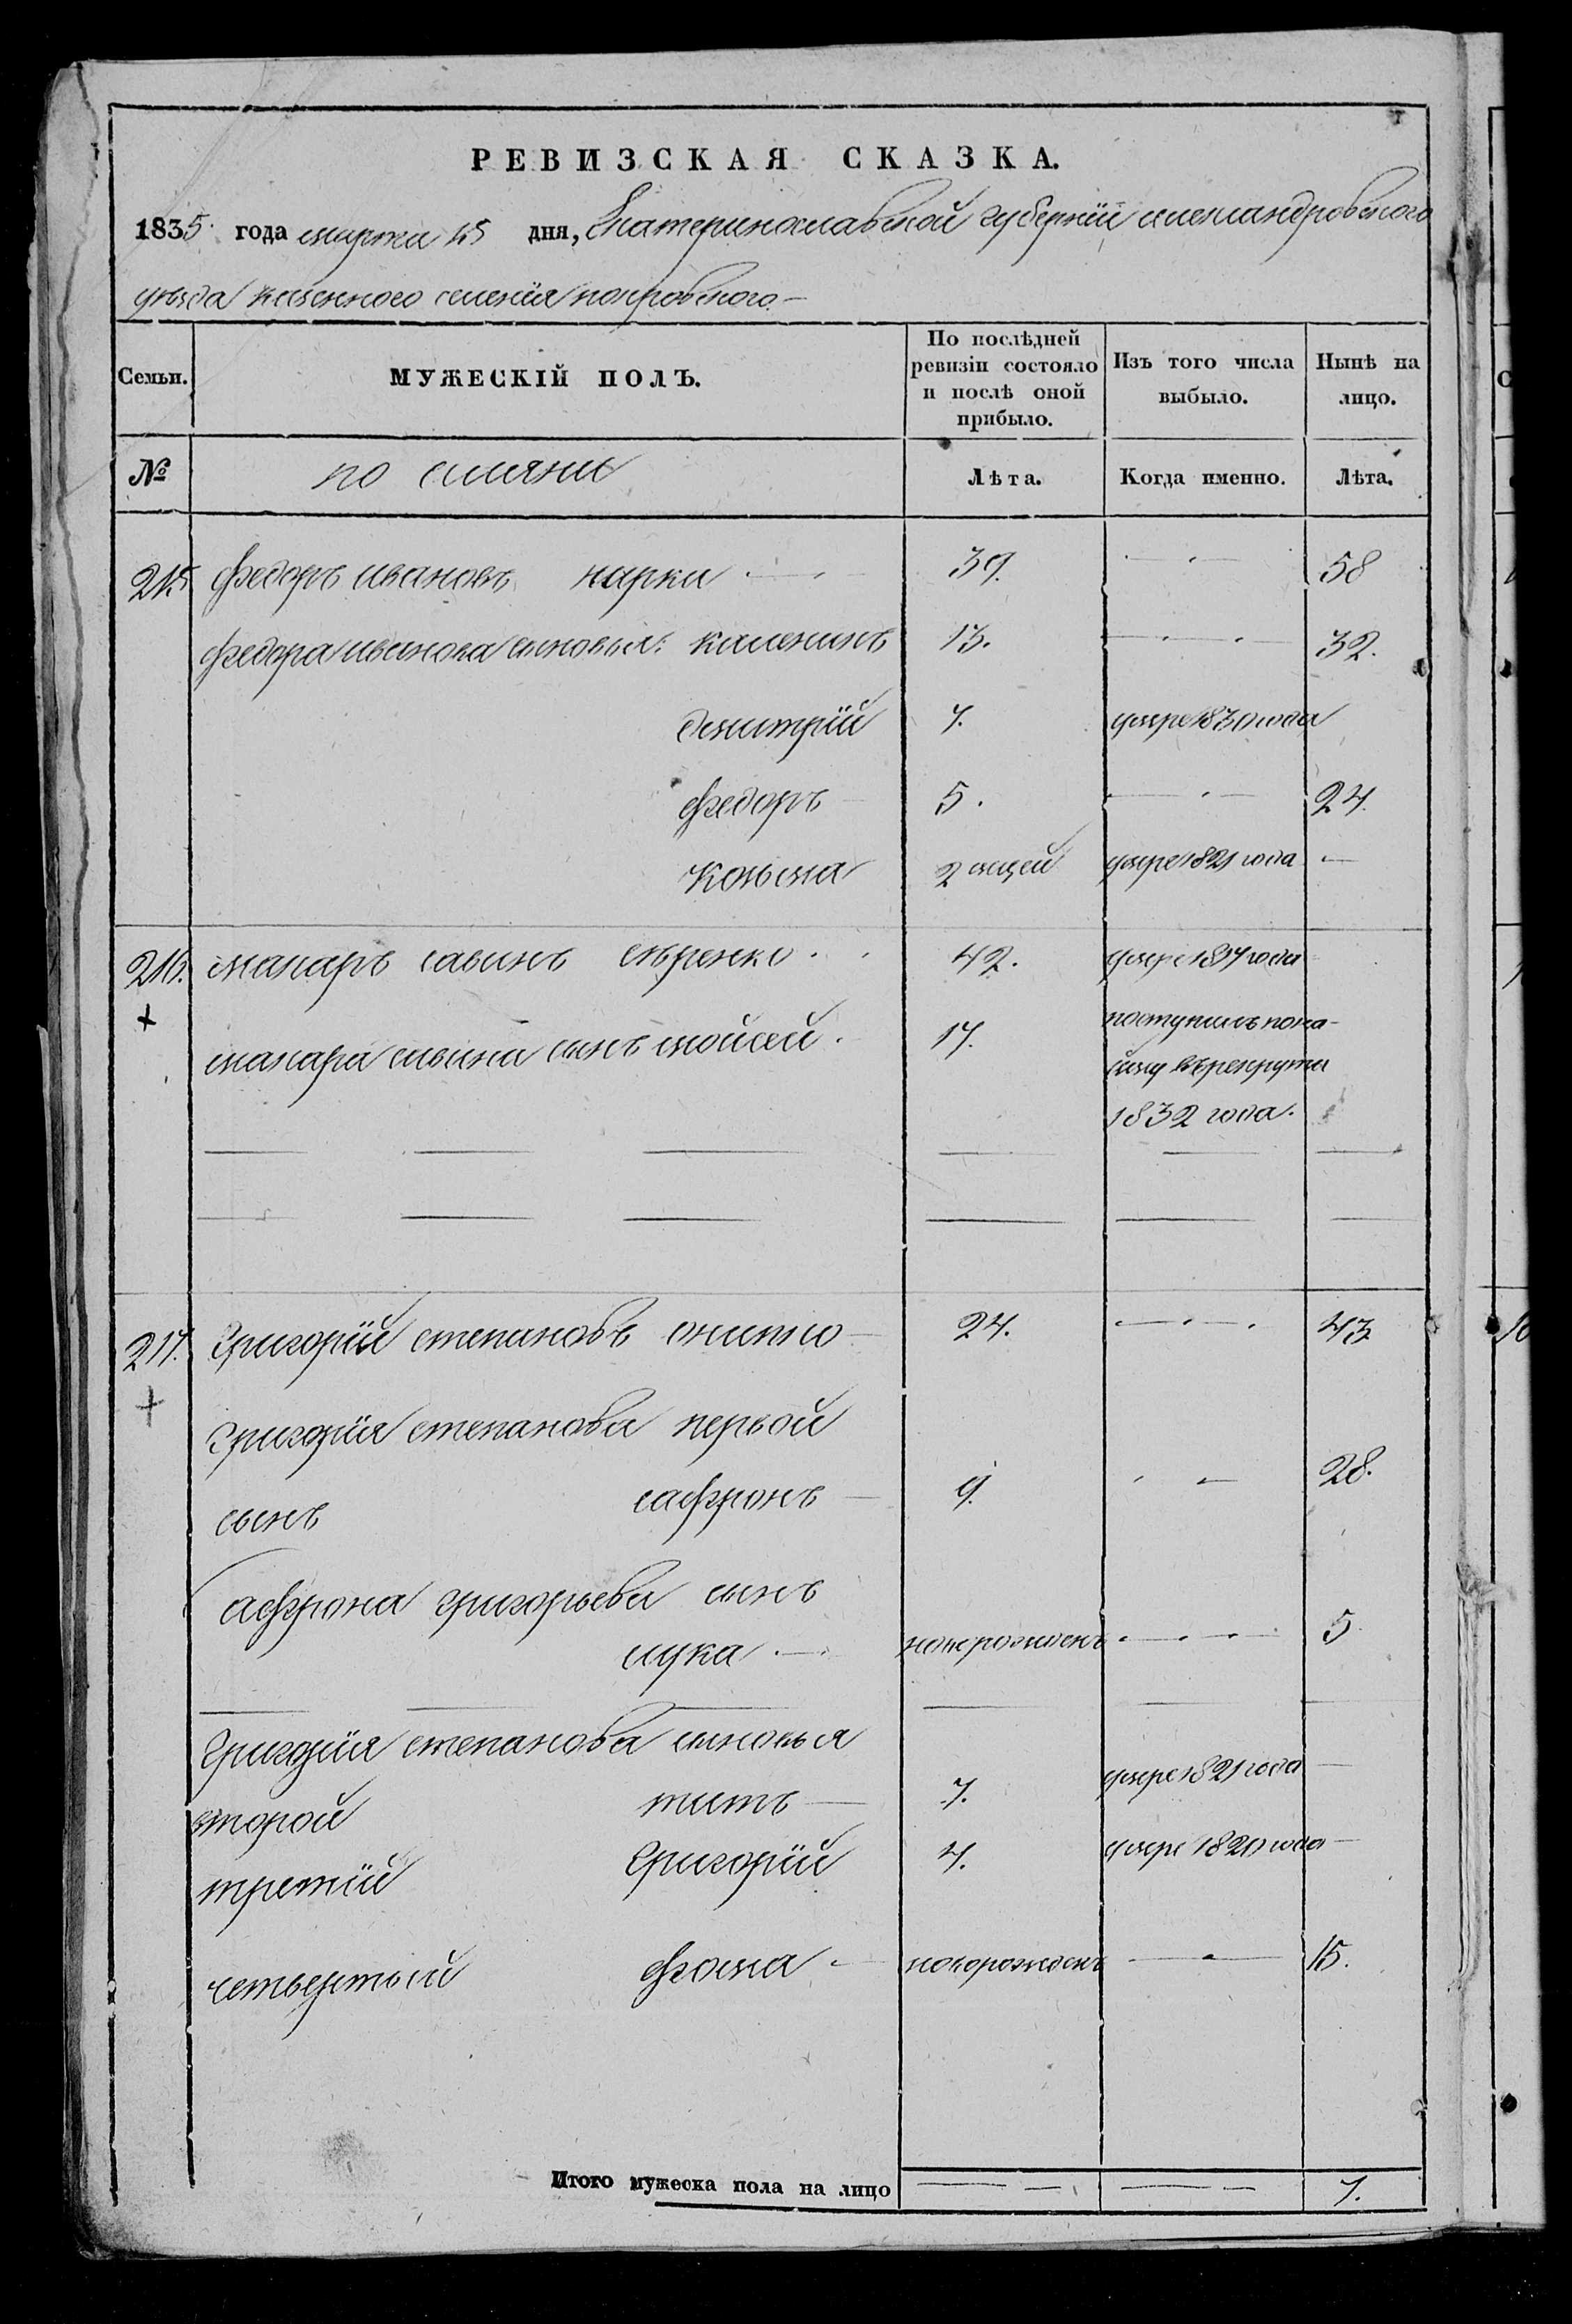 РЕВИЗСКАЯ СКАЗКА.
1835 года марта 15 дня, Екатеринославской губерніи александровского
уѣзда казенного селенія покровского
Семьи. МУЖЕСКІЙ ПОЛЪ. По послѣдней ревизіи состояло и послѣ оной прибыло. Изъ того числа выбыло. Нынѣ на лицо.
№ Лѣта. Когда именно. Лѣта.
215 федоръ ивановъ 39. 58
федора иванова сыновья: 13. 32.
дмитрій 7. умре 1830 года
федоръ 5. 24.
козьма 2 умре 1821 года
216. макаръ савинъ 42. умре года
макара савина сынъ мойсей. 17. поступилъ
въ рекруты
1832 года.
217. Григорій степановъ 24. 43
Григорія степанова первой
сынъ сафронъ 9. 28.
сафрона григорьева сынъ
лука новорожденъ 5
Григорія степанова сыновья
второй титъ 7. умре 1821 года
третій Григорій 4. умре 1820 года
четвертый фома новорожденъ 15.
Итого мужеска пола на лицо 7.